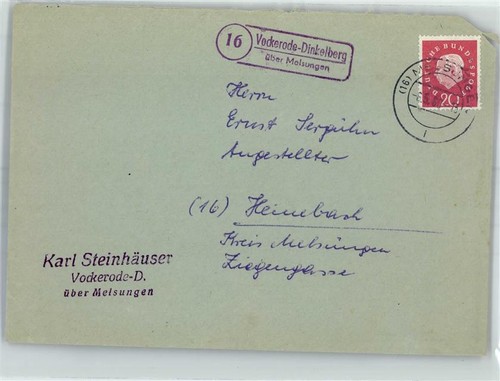 16
Vockerode-Dinkelberg
über Melsungen
DEUTSCHE BUNDESPOST
20
(16) MELSUNGEN
Herrn
Ernst
Angestellter
(16) Heinebach
Kreis Melsungen
Ziegengasse
Karl Steinhäuser
Vockerode-D.
über Melsungen